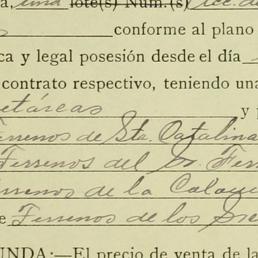 una lote(s) Núm.(s)
conforme al plano
ca y legal posesión desde el día
contrato respectivo, teniendo una
etáreas y p
errenos de Sta. Catalina
Terrenos del Sr.
rrenos de la
e Terrenos de los
UNDA:—El precio de venta de la